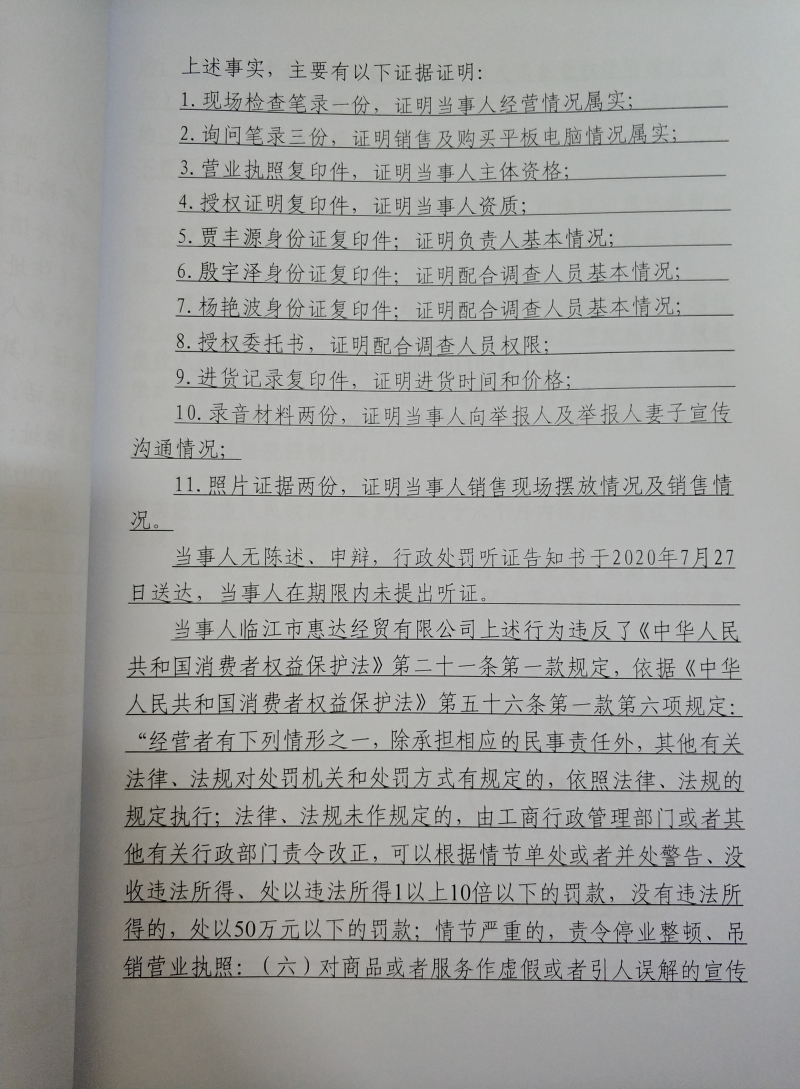 上述事实，主要有以下证据证明：
1.现场检查笔录一份，证明当事人经营情况属实；
2.询问笔录三份，证明销售及购买平板电脑情况属实；
3.营业执照复印件，证明当事人主体资格；
4.授权证明复印件，证明当事人资质；
5.贾丰源身份证复印件；证明负责人基本情况；
6.殷宇泽身份证复印件；证明配合调查人员基本情况；
7.杨艳波身份证复印件；证明配合调查人员基本情况；
8.授权委托书，证明配合调查人员权限；
9.进货记录复印件，证明进货时间和价格；
10.录音材料两份，证明当事人向举报人及举报人妻子宣传
沟通情况；
11.照片证据两份，证明当事人销售现场摆放情况及销售情
况。
当事人无陈述、申辩，行政处罚听证告知书于2020年7月27
日送达，当事人在期限内未提出听证。
当事人临江市惠达经贸有限公司上述行为违反了《中华人民
共和国消费者权益保护法》第二十一条第一款规定，依据《中华
人民共和国消费者权益保护法》第五十六条第一款第六项规定：
“经营者有下列情形之一，除承担相应的民事责任外，其他有关
法律、法规对处罚机关和处罚方式有规定的，依照法律、法规的
规定执行；法律、法规未作规定的，由工商行政管理部门或者其
他有关行政部门责令改正，可以根据情节单处或者并处警告、没
收违法所得、处以违法所得1以上10倍以下的罚款，没有违法所
得的，处以50万元以下的罚款；情节严重的，责令停业整顿、吊
销营业执照：（六）对商品或者服务作虚假或者引人误解的宣传